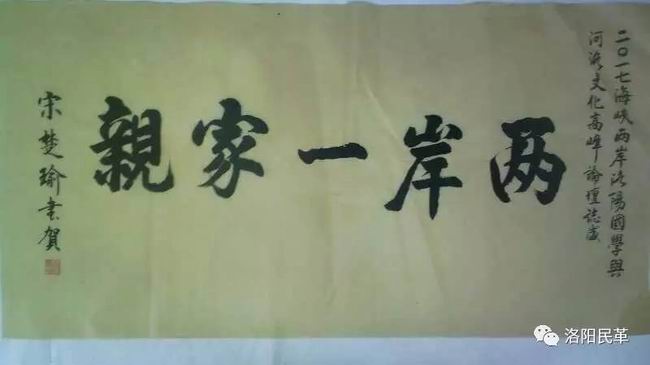 二〇一七海峽两岸洛陽國學與
河洛文化高峰論壇誌盛
两岸一家親
宋楚瑜書賀
洛阳民革